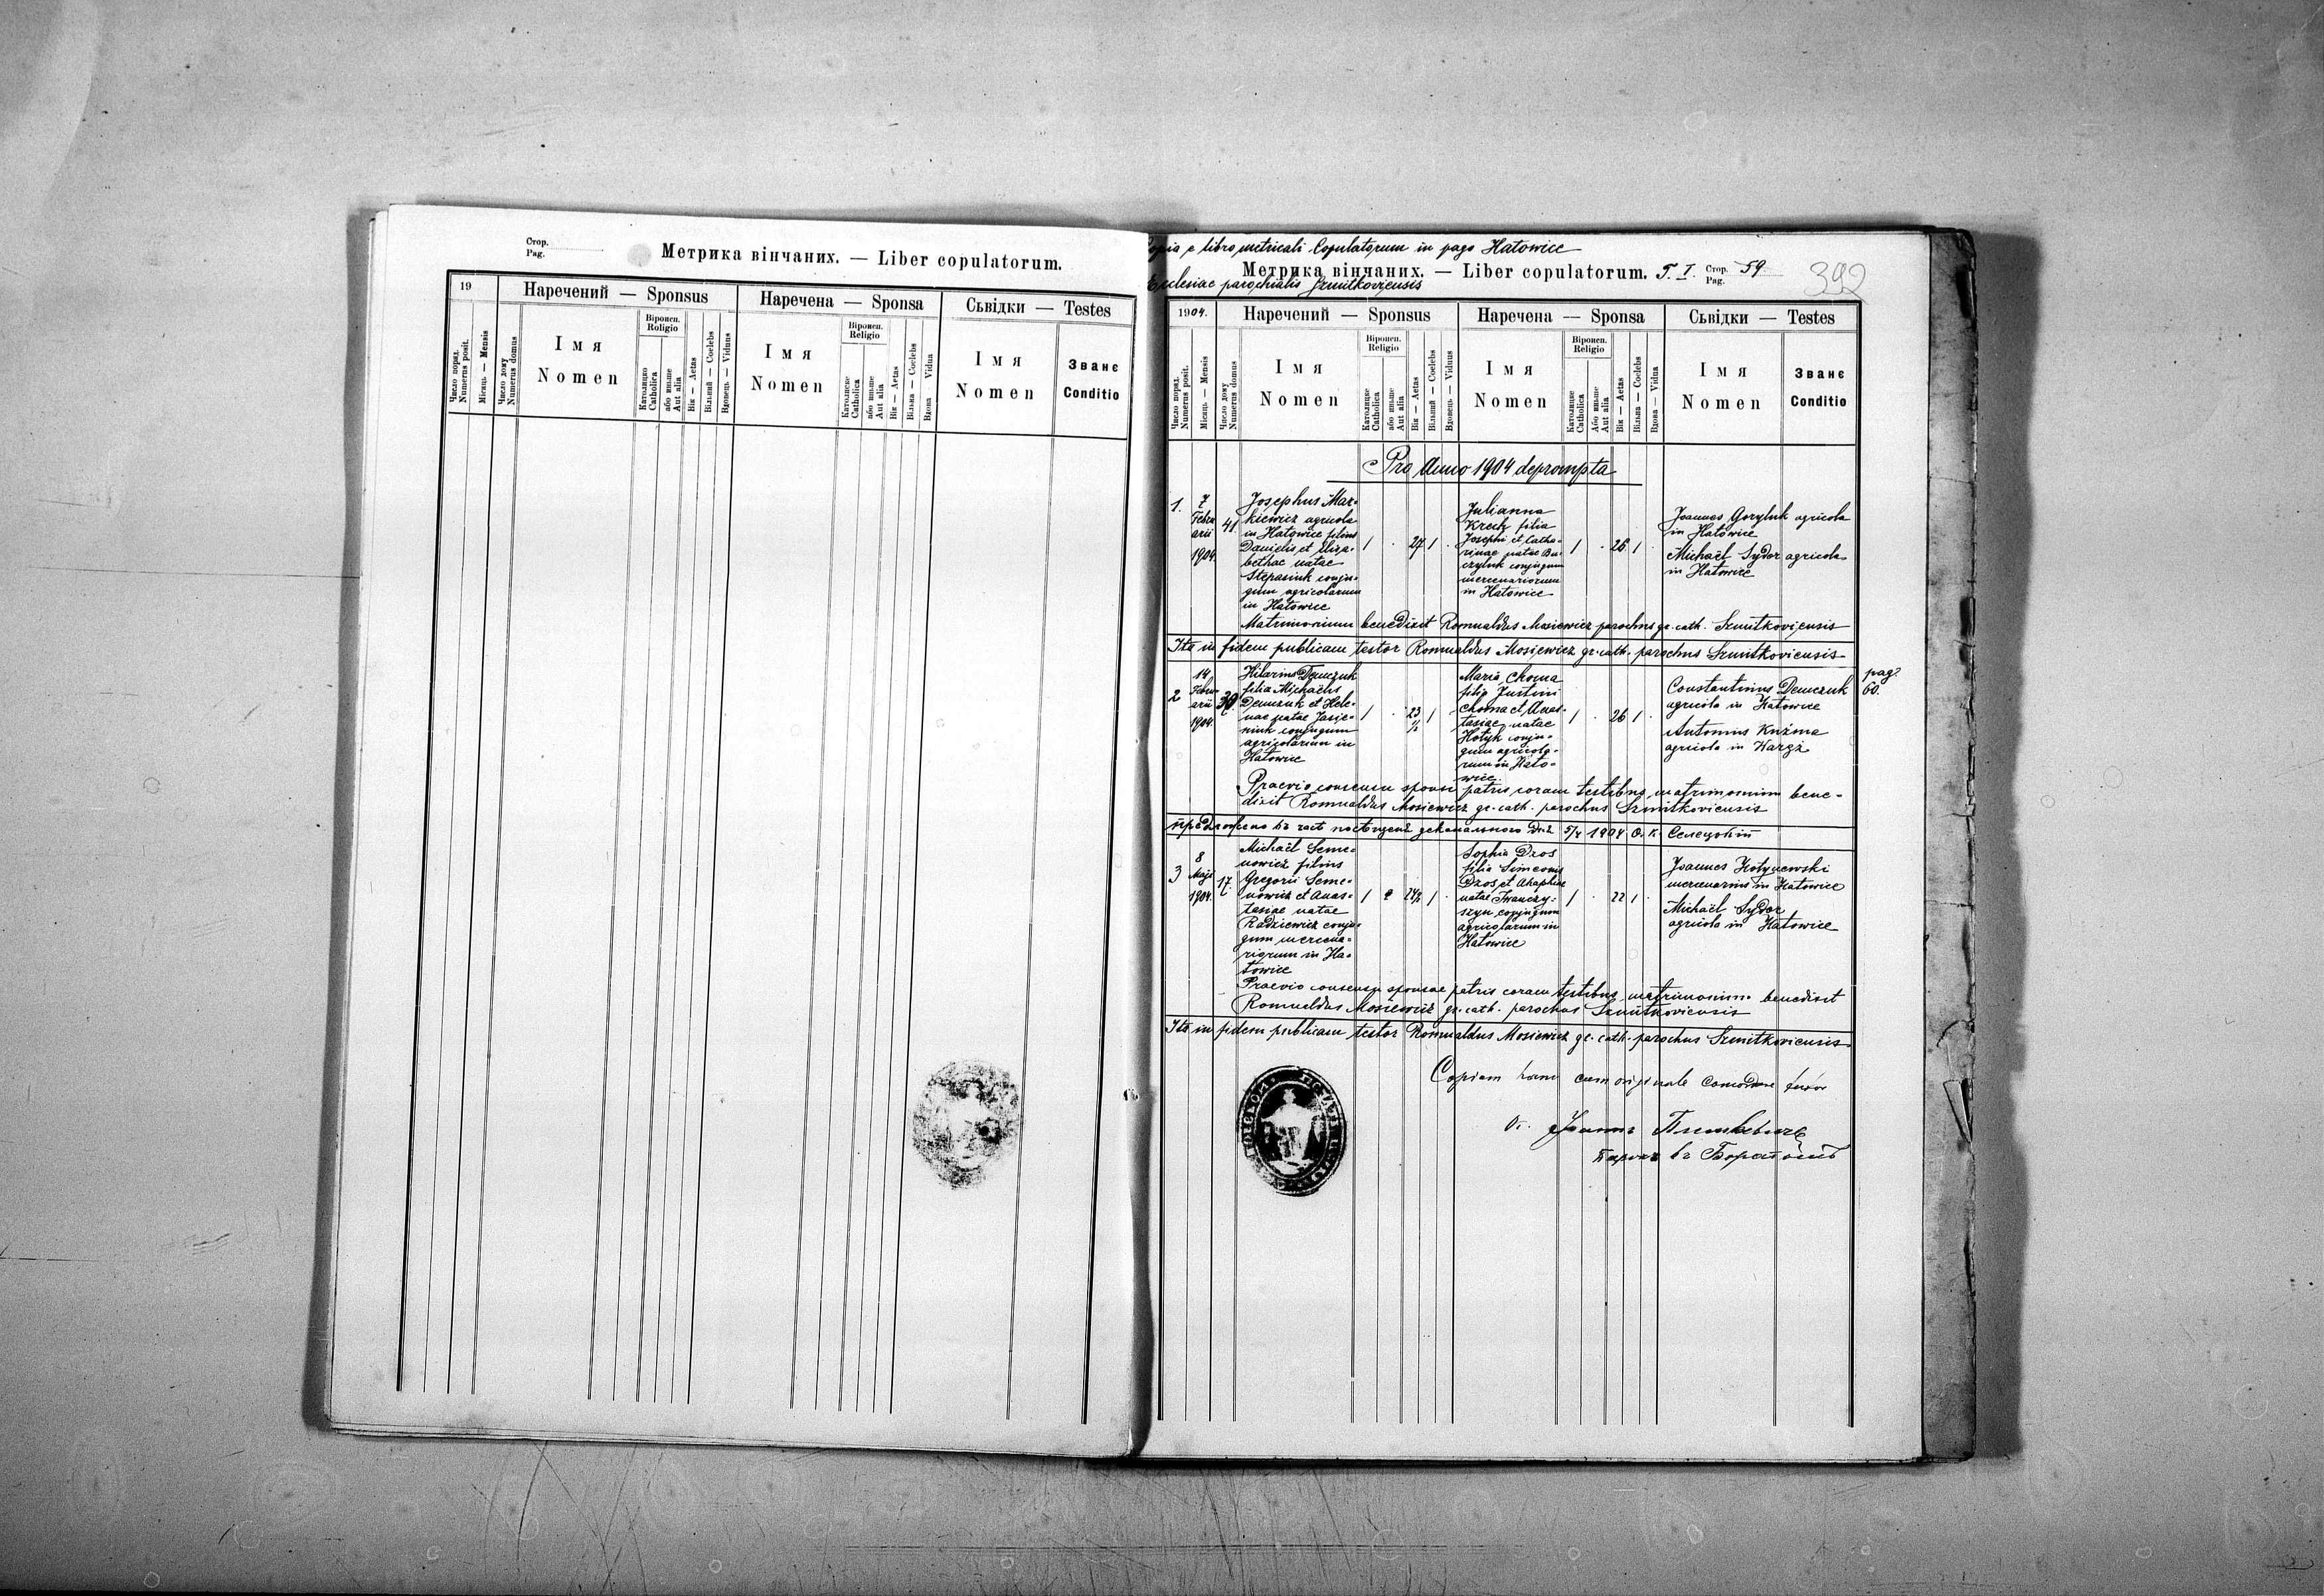 Стор.
Pag.
Метрика вінчаних. — Liber copulatorum.
19
Наречений — Sponsus
Наречена — Sponsa
Сьвідки — Testes
Число поряд.
Numerus posit.
Місяць — Mensis
Число дому
Numerus domus
Імя
Nomen
Віроисп.
Religio
Католицке
Catholica
або иньше
Aut alia
Вік — Aetas
Вільний — Coelebs
Вдовець — Viduus
Імя
Nomen
Віроисп.
Religio
Католицке
Catholica
або иньше
Aut alia
Вік — Aetas
Вільна — Coelebs
Вдова — Vidua
Імя
Nomen
Званє
Conditio
Copia e libro metricali Copulatorum in pago Hatowice
Метрика вінчаних. — Liber copulatorum. T. I. Стор. Pag. 59.
392
Ecclesiae parochialis Szmitkoviensis
1904.
Наречений — Sponsus
Наречена — Sponsa
Сьвідки — Testes
Число поряд.
Numerus posit.
Місяць — Mensis
Число дому
Numerus domus
Імя
Nomen
Віроисп.
Religio
Католицке
Catholica
або иньше
Aut alia
Вік — Aetas
Вільний — Coelebs
Вдовець — Viduus
Імя
Nomen
Віроисп.
Religio
Католицке
Catholica
Або иньше
Aut alia
Вік — Aetas
Вільна — Coelebs
Вдова — Vidua
Імя
Nomen
Званє
Conditio
Pro Anno 1904 deprompta
1.
7
Febru
arii
1904.
41.
Josephus Mar-
kiewicz agricola
in Hatowice filius
Danielis et Eliza-
bethae natae
Stepasiuk conju-
gum agricolarum
in Hatowice
1 . 27 1 .
Julianna
Kretz filia
Josephi et Catha-
rinae natae Bu-
czyluk conjugum
mercenariorum
in Hatowice
1 . 26 1 .
Joannes Goryluk agricola
in Hatowice
Michaël Sydor agricola
in Hatowice
Matrimonium benedixit Romualdus Mosiewicz parochus gr. cath. Szmitkoviensis
Ita in fidem publicam testor Romualdus Mosiewicz gr. cath. parochus Szmitkoviensis
2
14
Febru-
arii
1904.
30
Hilarius Demczuk
filia Michaëlis
Demczuk et Hele-
nae natae Jasie-
niuk conjugum
agricolarum in
Hatowice
1 . 23 ½ 1 .
Maria Choma
filia Justini
Choma et Anas-
tasiae natae
Hotyk conju-
gum agricola-
rum in Hato-
wice.
1 . 26 1 .
Constantinus Demczuk
agricola in Hatowice
Antonius Kuźma
agricola in Waręż
pag.
60.
Praevio consensu sponsi patris coram testibus matrimonium bene-
dixit Romualdus Mosiewicz gr. cath. parochus Szmitkoviensis
1904 О. К. Селецкій
3
8
Maji
1904.
17.
Michaël Seme-
nowicz filius
Gregorii Seme-
nowicz et Anas-
tasiae natae
Radziewicz conju-
gum mercena-
riorum in Ha-
towice
1 24½ 1 .
Sophia Dzos
filia Simeonis
Dzos et Ahaphiae
natae Iwanczy-
szyn conjugum
agricolarum in
Hatowice
1 . 22 1 .
Joannes Hotynewski
mercenarius in Hatowice
Michaël Sydor
agricola in Hatowice
Praevio consensu sponsae patris coram testibus matrimonium benedixit
Romualdus Mosiewicz gr. cath. parochus Szmitkoviensis
Ita in fidem publicam testor Romualdus Mosiewicz gr. cath. parochus Szmitkoviensis
Copiam hanc cum originale